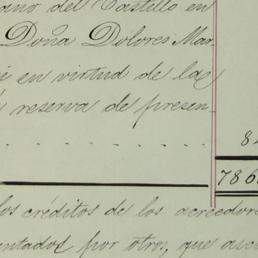 ano del Castillo en
Doña Dolores Mar
i en virtud de la
reserva de presen
8
786
los créditos de los acreedore
entados por otro, que